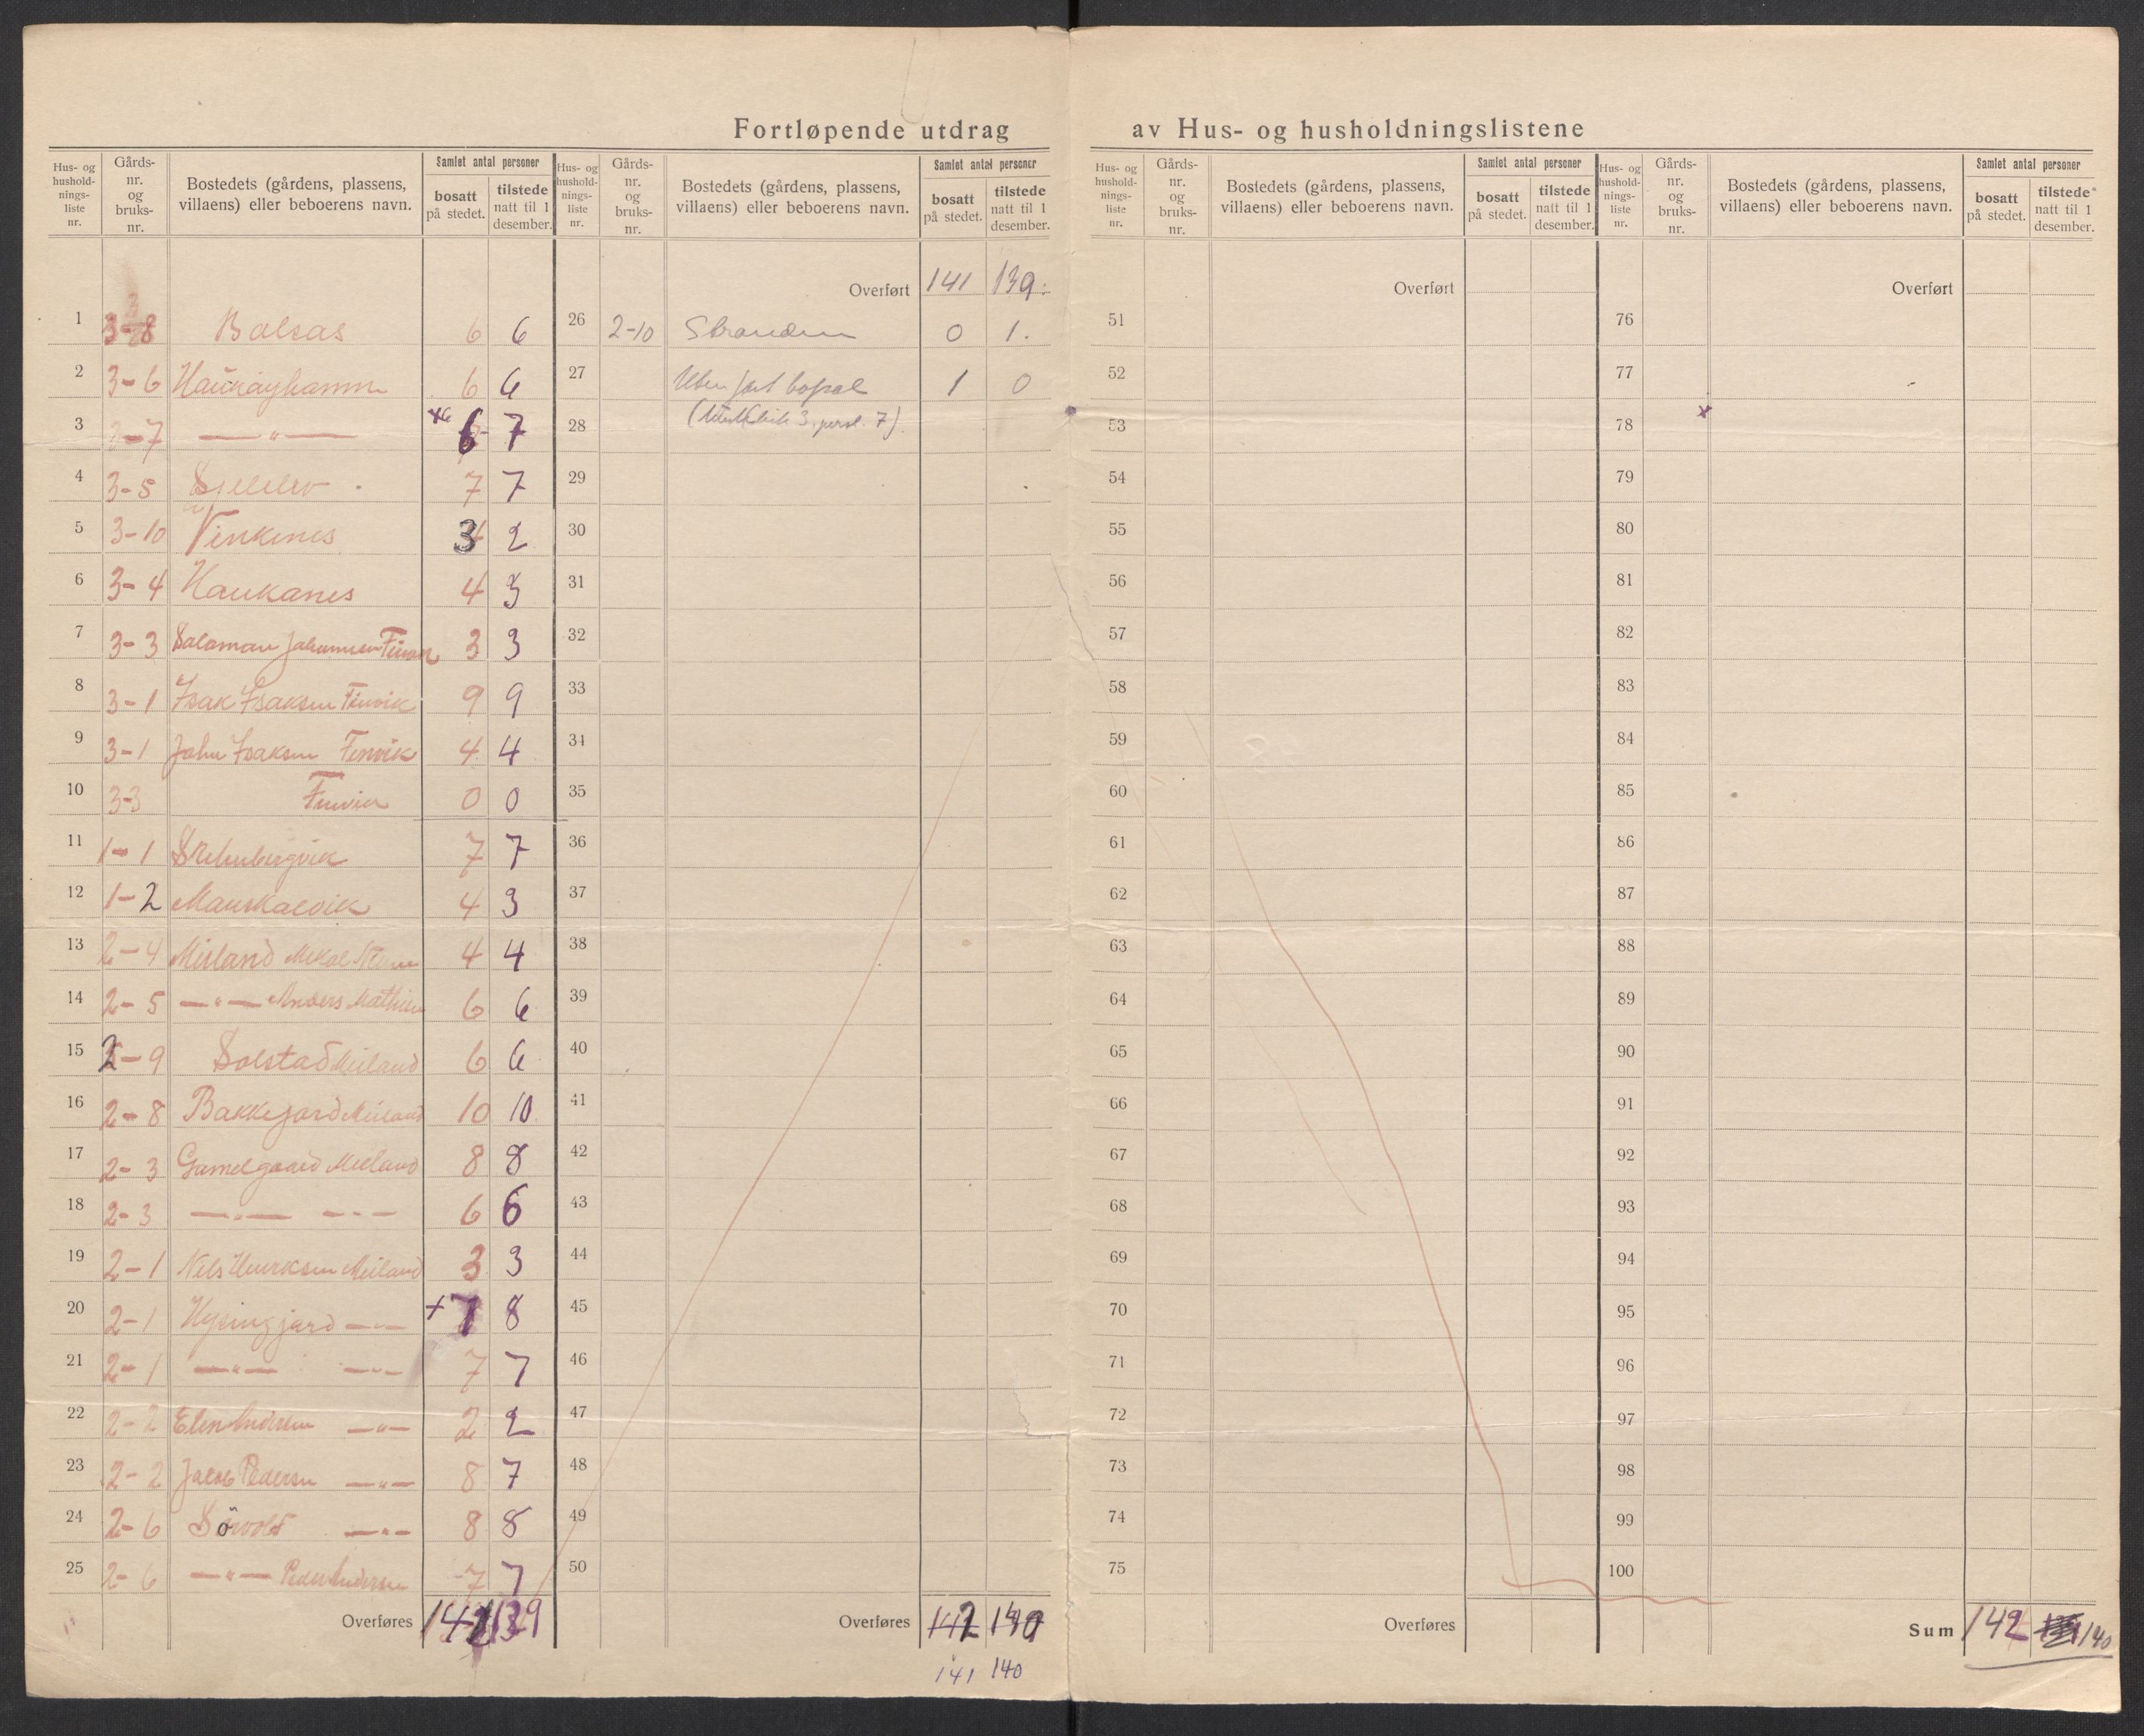 Fortløpende utdrag av Hus- og husholdningslistene
Hus- og husholdnings- liste nr.
Gårds- nr. og bruks- nr.
Bostedets (gårdens, plassens, villaens) eller beboerens navn.
Samlet antal personer
bosatt på stedet.
tilstede natt til 1 desember.
1 3-8 6 6
2 3-6 6 6
3 -7 — " — 6 7
4 3-5 7 7
5 3-10 3 2
6 3-4 Haukanes 4 3
7 3-3 Salaman Johannesen 3 3
8 3-1 Isak Isaksen Finvik 9 9
9 3-1 John Isaksen Finvik 4 4
10 3-3 Finvik 0 0
11 1-1 7 7
12 1-2 4 3
13 2-4 Meiland 4 4
14 2-5 — " — Anders 6 6
15 2-9 Solstad Meiland 6 6
16 2-8 Bakkejord Meiland 10 10
17 2-3 Gamelgaard Meiland 8 8
18 2-3 — " — - - - 6 6
19 2-1 Nils Meiland 3 3
20 2-1 + 7 8
21 2-1 — " — — " — 7 7
22 2-2 Elen Andersen — " — 2 2
23 2-2 Jakob Pedersen — " — 8 7
24 2-6 — " — 8 8
25 2-6 — " — Peder Andersen 7 7
Overføres 141 139
Hus- og husholdnings- liste nr.
Gårds- nr. og bruks- nr.
Bostedets (gårdens, plassens, villaens) eller beboerens navn.
Samlet antal personer
bosatt på stedet.
tilstede natt til 1 desember.
Overført 141 139.
26 2-10 Stranden 0 1.
27 Uten fast bopæl 1 0
28 3, pers. 7).
29
30
31
32
33
34
35
36
37
38
39
40
41
42
43
44
45
46
47
48
49
50
Overføres 142 140
141 140
Hus- og husholdnings- liste nr.
Gårds- nr. og bruks- nr.
Bostedets (gårdens, plassens, villaens) eller beboerens navn.
Samlet antal personer
bosatt på stedet.
tilstede natt til 1 desember.
Overført
51
52
53
54
55
56
57
58
59
60
61
62
63
64
65
66
67
68
69
70
71
72
73
74
75
Overføres
Hus- og husholdnings- liste nr.
Gårds- nr. og bruks- nr.
Bostedets (gårdens, plassens, villaens) eller beboerens navn.
Samlet antal personer
bosatt på stedet.
tilstede natt til 1 desember.
Overført
76
77
78
79
80
81
82
83
84
85
86
87
88
89
90
91
92
93
94
95
96
97
98
99
100
Sum 142 140